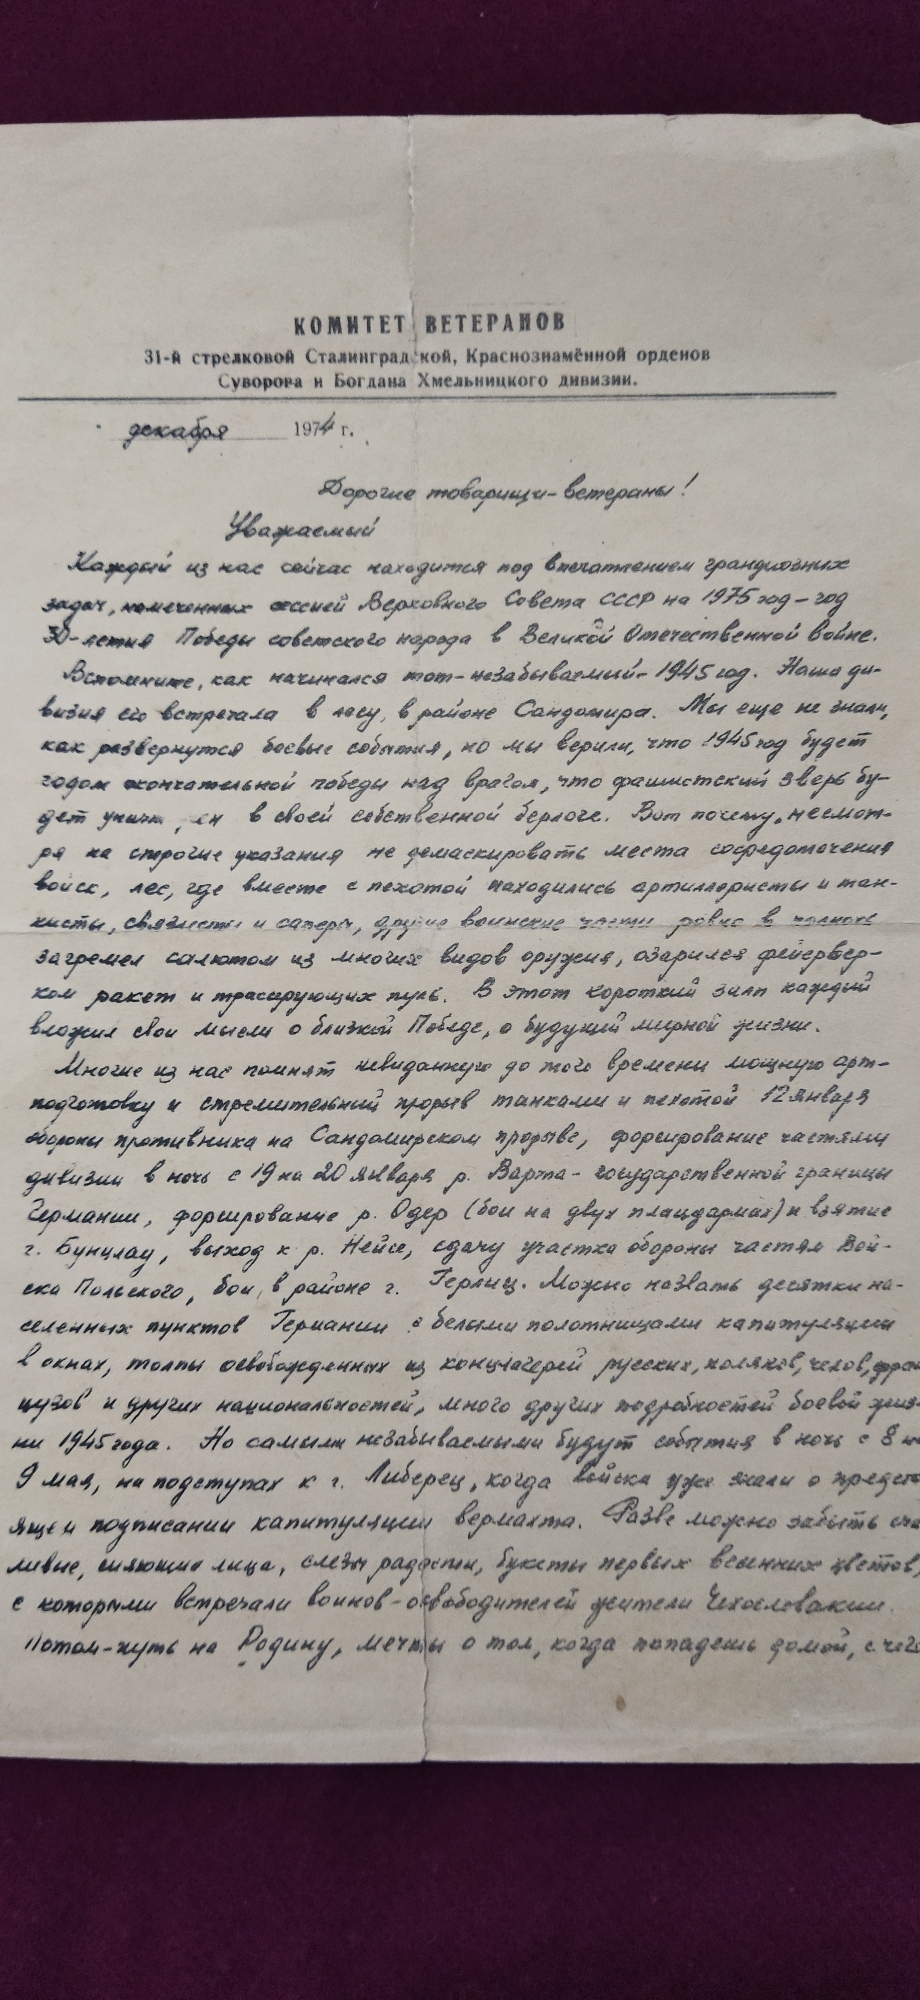 КОМИТЕТ ВЕТЕРАНОВ
31-й стрелковой Сталинградской, Краснознамённой орденов
Суворова и Богдана Хмельницкого дивизии.
декабря 1974 г.
Дорогие товарищи-ветераны!
Уважаемый
Каждый из нас сейчас находится под впечатлением грандиозных
задач, намеченных сессией Верховного Совета СССР на 1975 год – год
30-летия Победы советского народа в Великой Отечественной войне.
Вспомните, как начинался тот – незабываемый – 1945 год. Наша ди-
визия его встречала в лесу, в районе Сандомира. Мы еще не знали,
как развернутся боевые события, но мы верили, что 1945 год будет
годом окончательной победы над врагом, что фашистский зверь бу-
дет в своей собственной берлоге. Вот почему, несмот-
ря на строгие указания не демаскировать места сосредоточения
войск, лес, где вместе с пехотой находились артиллеристы и тан-
кисты, связисты и саперы, другие воинские части ровно в полночь
загремел салютом из многих видов оружия, озарился фейервер-
ком ракет и трассирующих пуль. В этот короткий залп каждый
вложил свои мысли о близкой Победе, о будущей мирной жизни.
Многие из нас помнят невиданную до того времени мощную арт-
подготовку и стремительный прорыв танками и пехотой 12 января
обороны противника на Сандомирском прорыве, форсирование частями
дивизии в ночь с 19 на 20 января р. Варта – государственной границы
Германии, форсирование р. Одер (бои на двух плацдармах) и взятие
г. Бунцлау, выход к р. Нейсе, сдачу участка обороны частям Вой-
ска Польского, бои в районе г. Герлиц. Можно назвать десятки на-
селенных пунктов Германии с белыми полотнищами капитуляции
в окнах, толпы освобожденных из концлагерей русских, поляков, чехов, фран
цузов и других национальностей, много других подробностей боевой жиз-
ни 1945 года. Но самыми незабываемыми будут события в ночь с 8 на
9 мая, на подступах к г. Либерец, когда войска уже знали о предсто
ящем подписании капитуляции вермахта. Разве можно забыть сча
ливые, сияющие лица, слезы радости, букеты первых весенних цветов,
с которыми встречали воинов-освободителей жители Чехословакии.
Потом – путь на Родину, мечты о том, когда попадешь домой, с чего